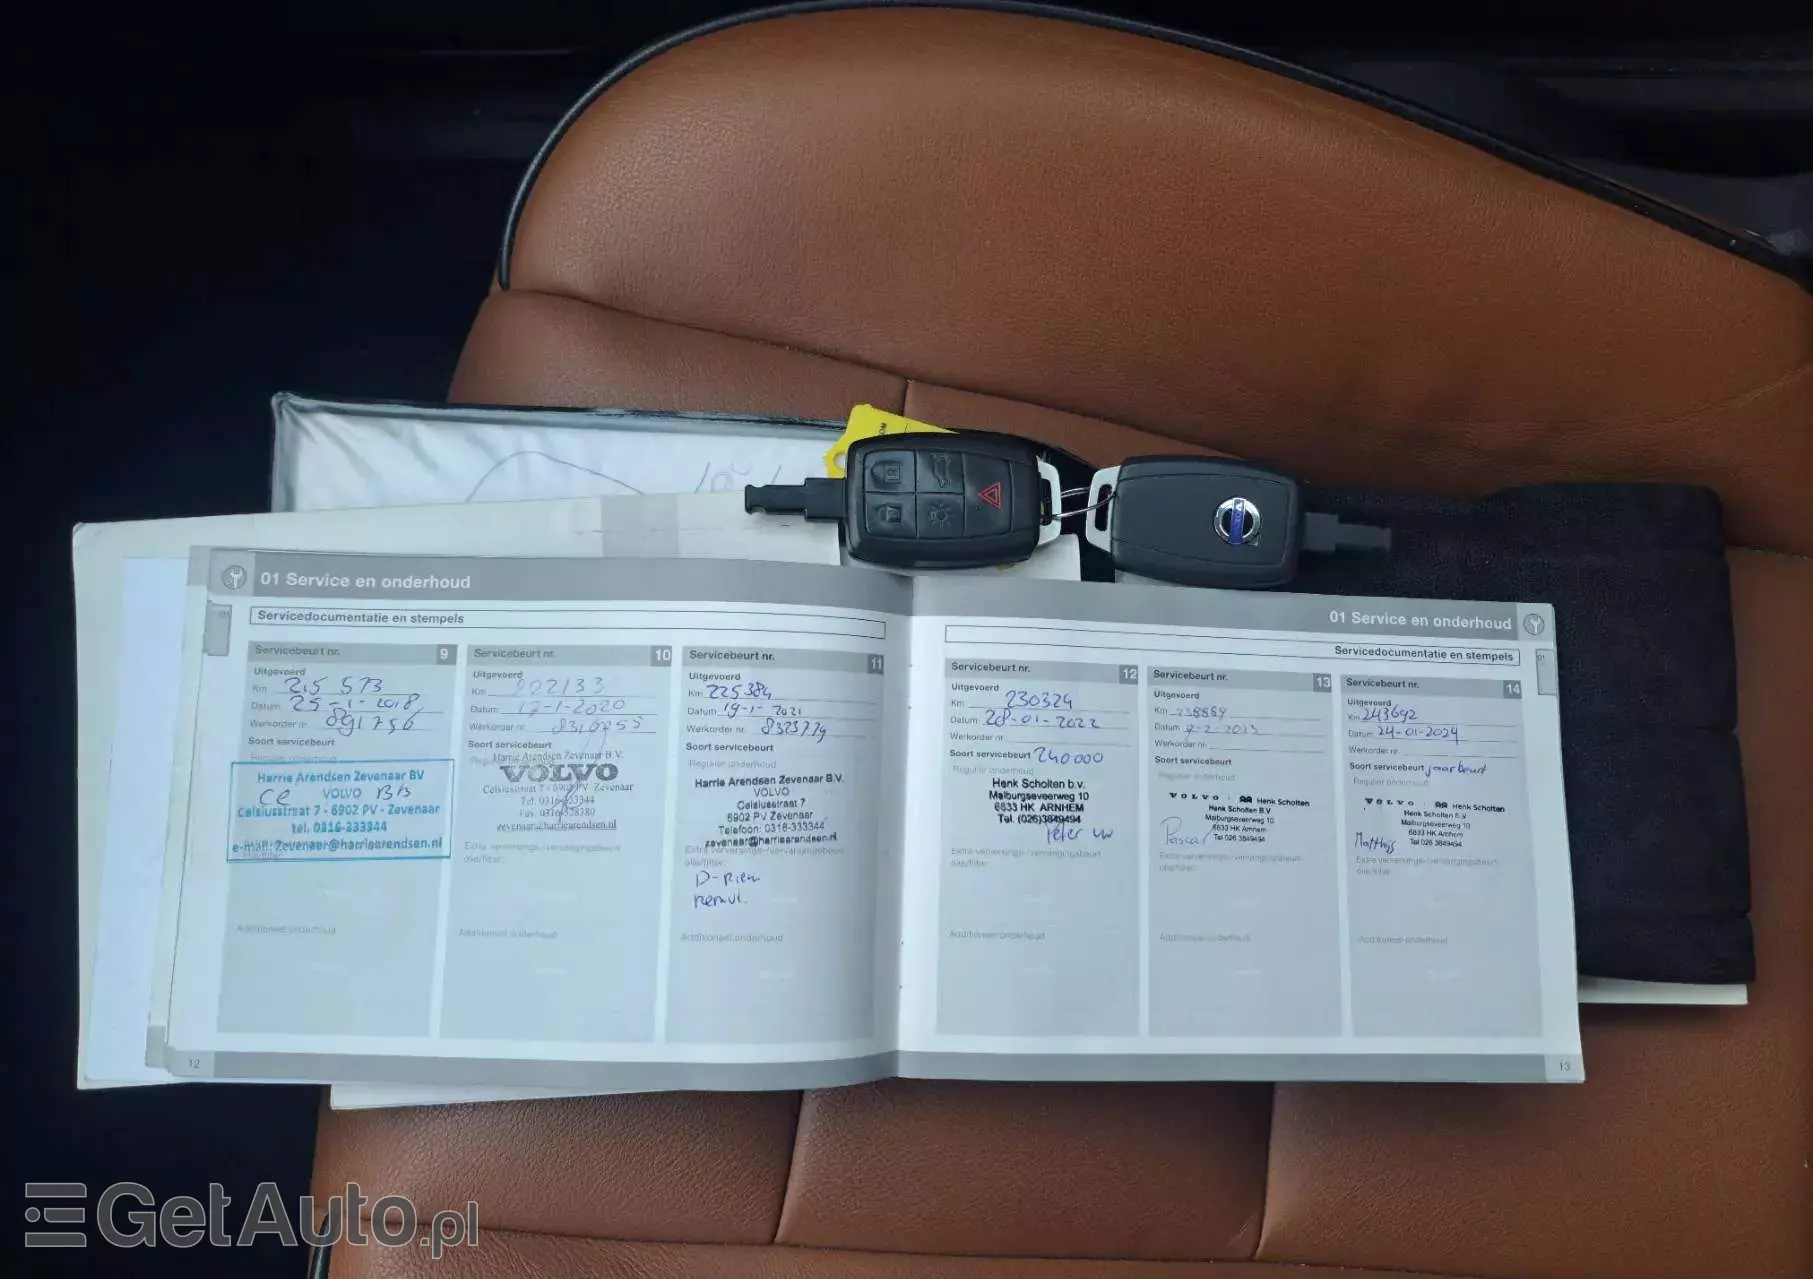 01 Service en onderhoud
Servicedocumentatie en stempels
Servicebeurt nr. 9
Uitgevoerd
Km 215 573
Datum 25-1-2018
Werkorder nr. 891756
Soort servicebeurt
Regulier onderhoud
Harrie Arendsen Zevenaar BV
VOLVO
Celsiusstraat 7 - 6902 PV - Zevenaar
tel. 0316-333344
e-mail: Zevenaar@harriearendsen.nl
Additioneel onderhoud
Servicebeurt nr. 10
Uitgevoerd
Km 222133
Datum 17-1-2020
Werkorder nr.
Soort servicebeurt
Harrie Arendsen Zevenaar B.V.
VOLVO
Celsiusstraat 7 - 6902 PV Zevenaar
Tel. 0316-333344
Fax. 0316-528380
zevenaar@harriearendsen.nl
Extra verversings-/vervangingsbeurt
olie/filter:
Additioneel onderhoud
Servicebeurt nr. 11
Uitgevoerd
Km 225384
Datum 19-1-2021
Werkorder nr. 8323779
Soort servicebeurt
Regulier onderhoud
Harrie Arendsen Zevenaar B.V.
VOLVO
Celsiusstraat 7
6902 PV Zevenaar
Telefoon: 0316-333344
zevenaar@harriearendsen.nl
Extra verversings-/vervangingsbeurt
olie/filter:
D-riem
Additioneel onderhoud
12
01 Service en onderhoud
Servicedocumentatie en stempels
Servicebeurt nr. 12
Uitgevoerd
Km 230324
Datum 28-01-2022
Werkorder nr.
Soort servicebeurt 240000
Regulier onderhoud
Henk Scholten b.v.
Malburgseveerweg 10
6833 HK ARNHEM
Tel. (026)3849494
Peter
Extra verversings-/vervangingsbeurt
olie/filter:
Additioneel onderhoud
Servicebeurt nr. 13
Uitgevoerd
Km 238889
Datum 9-2-2023
Werkorder nr.
Soort servicebeurt
Regulier onderhoud
VOLVO Henk Scholten
Henk Scholten B.V.
Malburgseveerweg 10
6833 HK Arnhem
Tel 026 3849494
Pascal
Extra verversings-/vervangingsbeurt
olie/filter:
Additioneel onderhoud
Servicebeurt nr. 14
Uitgevoerd
Km 243692
Datum 24-01-2024
Werkorder nr.
Soort servicebeurt jaarbeurt
Regulier onderhoud
VOLVO Henk Scholten
Henk Scholten B.V.
Malburgseveerweg 10
6833 HK Arnhem
Tel 026 3849494
Matthijs
Extra verversings-/vervangingsbeurt
olie/filter:
Additioneel onderhoud
13
VOLVO
GetAuto.pl